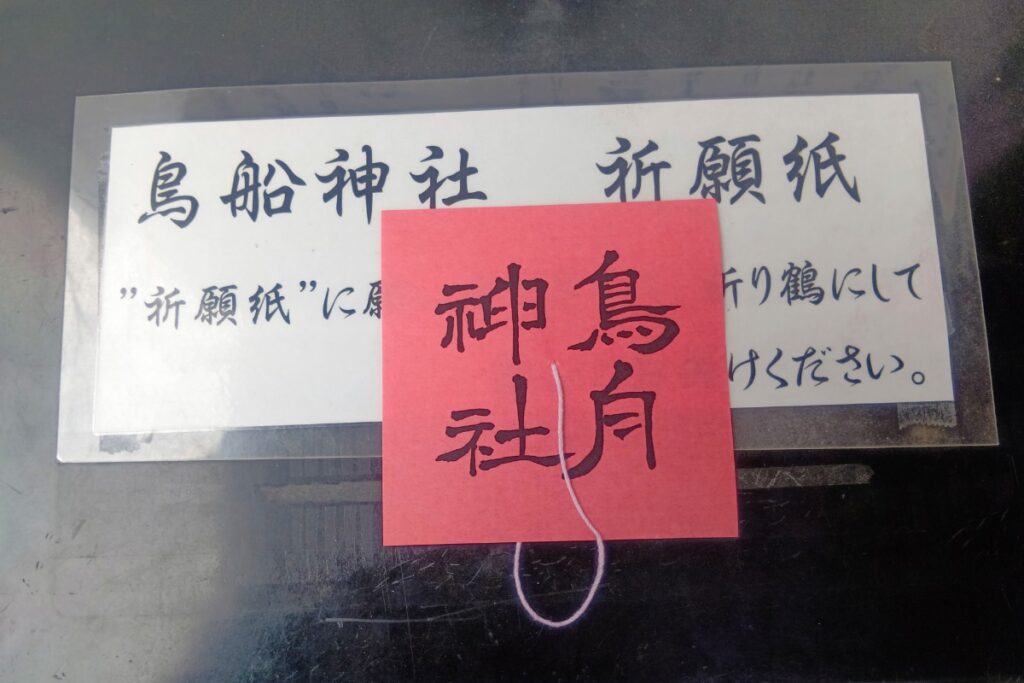 鳥船神社 祈願紙
”祈願紙”に
り鶴にして
けください。
鳥舟
神社